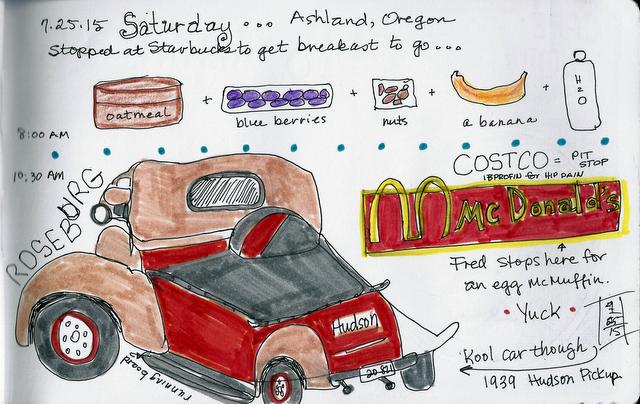 7.25.15 Saturday ... Ashland, Oregon
Stopped at Starbucks to get breakast to go...
oatmeal + blue berries + nuts + a banana + H2O
8:00 AM
10:30 AM
ROSEBURG
COSTCO = PIT STOP
IBPROFIN for HIP PAIN
McDonald's
Fred stops here for
an egg McMuffin.
• Yuck •
Kool car though
1939 Hudson Pickup
Hudson
running board